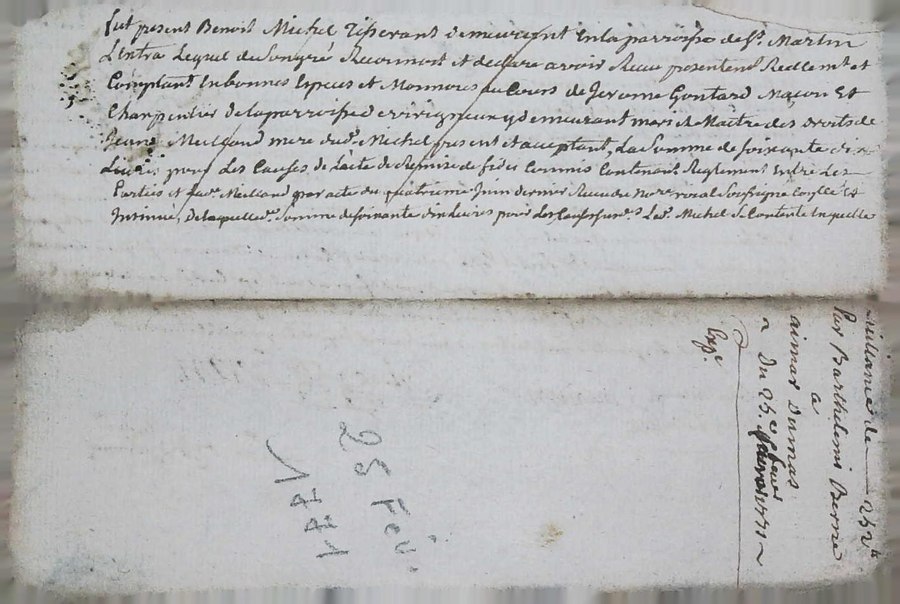 fut present Benoit Michel Tisserant demeurant En la parroisse de St. Martin
Lestra Lequel de Son gré Reconnoit et declare avoir Receu presentemt. Reellemt. et
Comptant En bonnes Especes et Monnoyes du Cours de Jerome Gontard Maçon Et
Charpentier de la parroisse d' y demeurant mari et Maitre des droits de
Jeanne mere dud. Michel present et acceptant, La Somme de Soixante dix
Livres pour Les Causes de L'acte de Remise de fidei Commis Contenant Reglement Entre Les
Parties et par acte du quatrieme Juin dernier Receu du nore. roial Soussigne Et
Insinué, De laquelle de. Somme de soixante dix Livres pour Les Causes Led. Michel Se Contente
Quittance de 252 lt
Par Barthelemi
a
aimar Dumas
Du 25e.
Exp.e
25 Fev.
1771